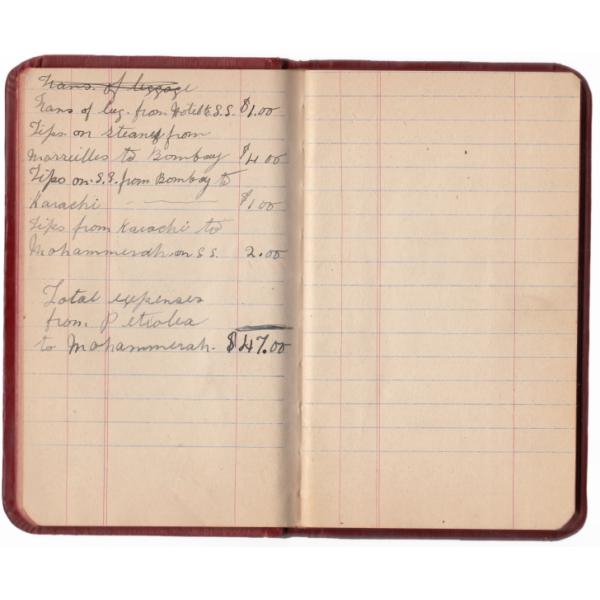 Trans. of luggage
Trans of lug. from Hotel to S.S. $1.00
Tips on steamer from
Marseilles to Bombay $4.00
Tips on S.S. from Bombay to
Karachi $1.00
Tips from Karachi to
Mohammerah on S.S. 2.00
Total expenses
from Petrolea
to Mohammerah. $47.00